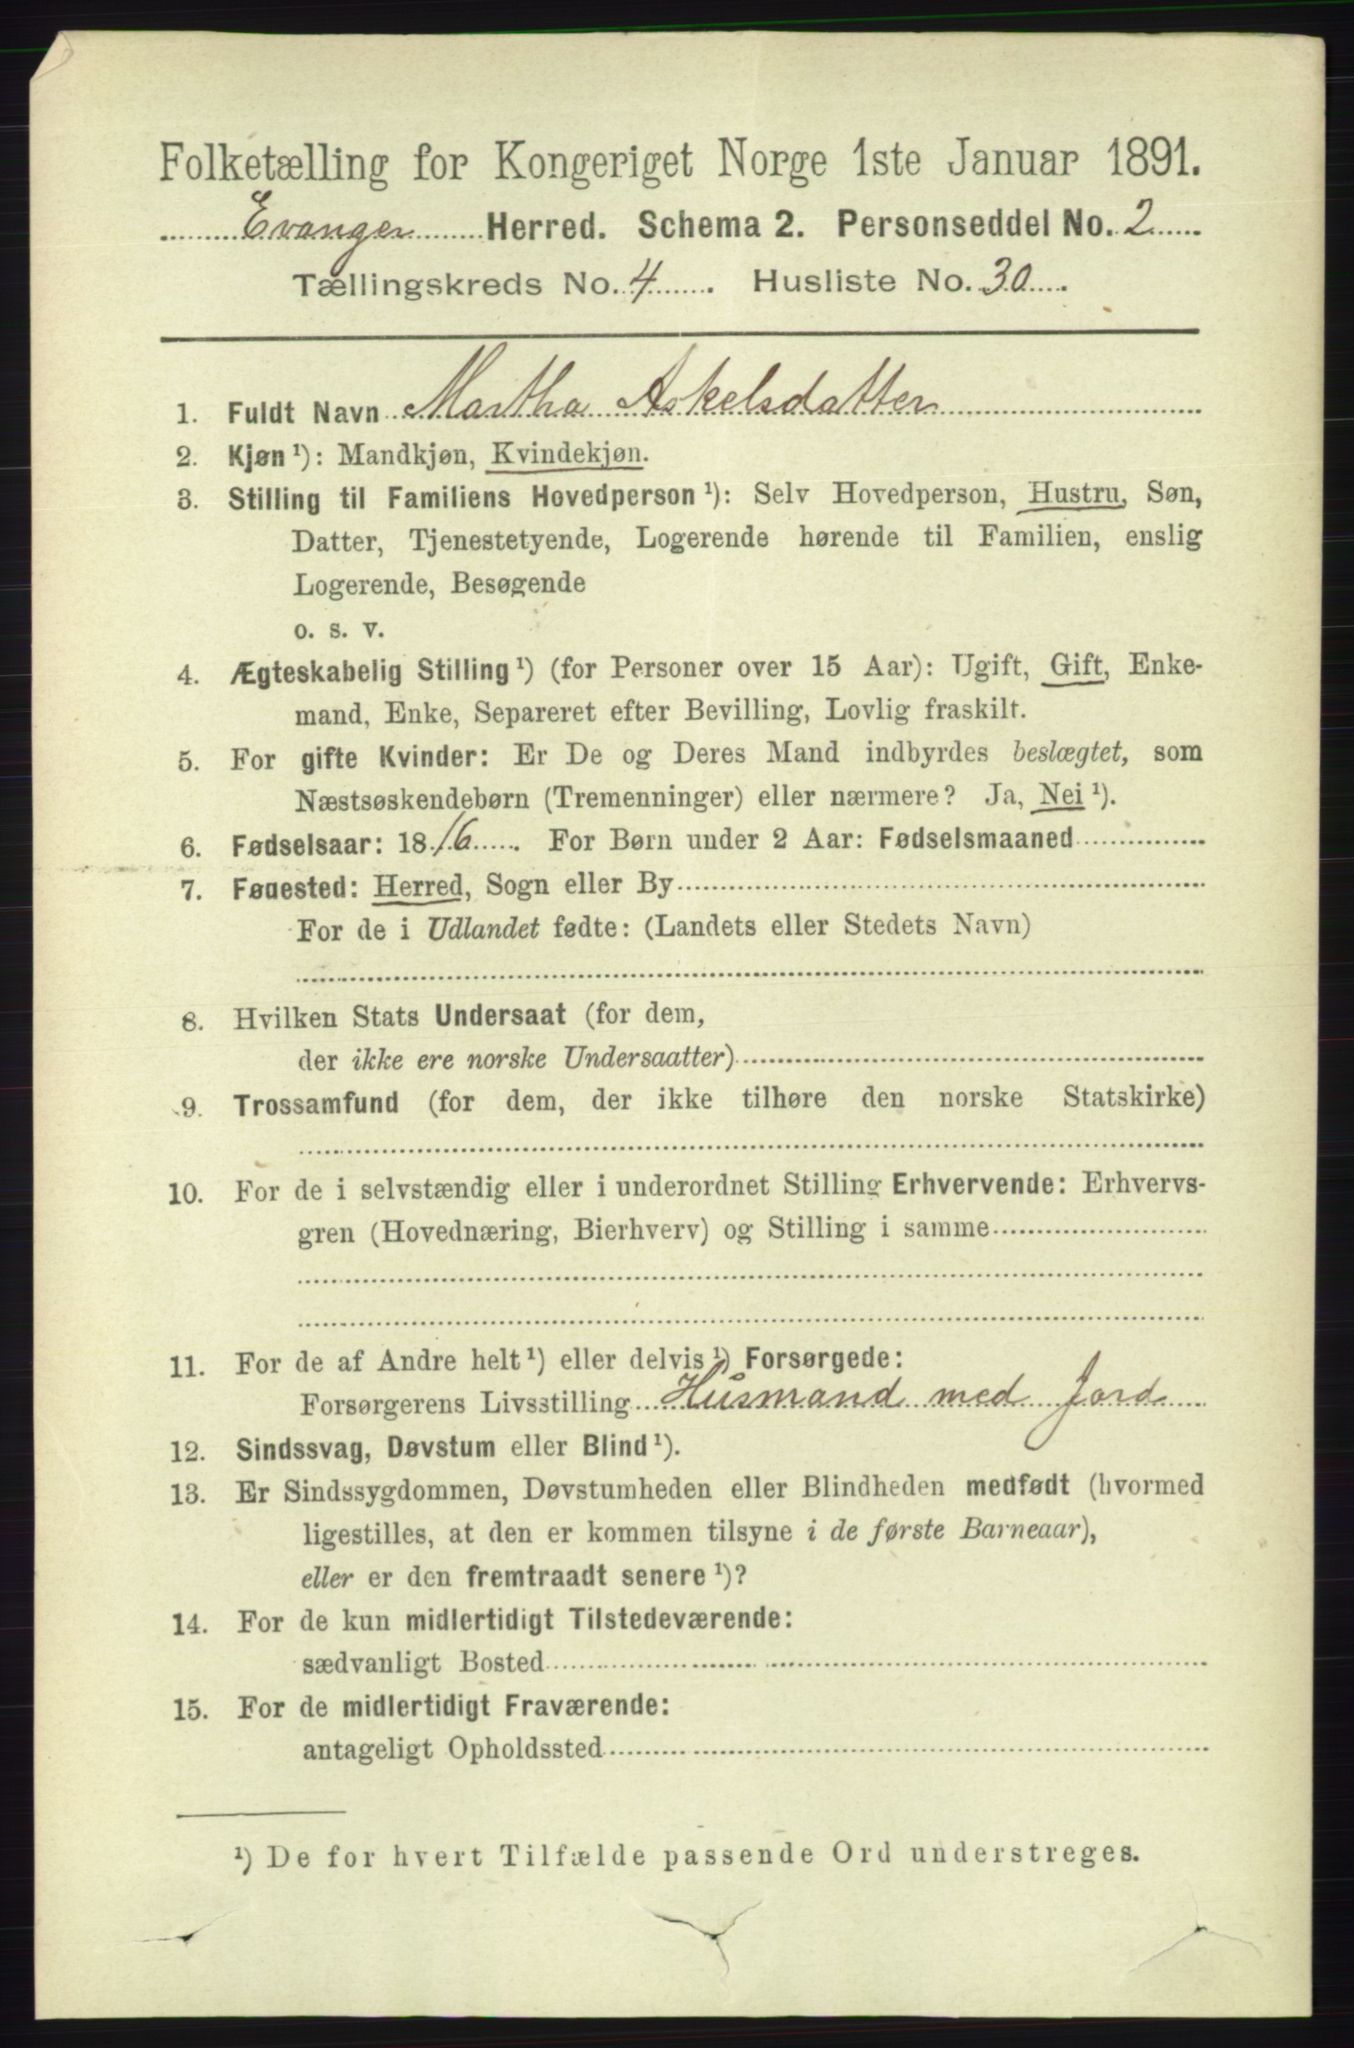 Folketælling for Kongeriget Norge 1ste Januar 1891.
Evanger Herred. Schema 2. Personseddel No. 2
Tællingskreds No. 4. Husliste No. 30.
1. Fuldt Navn Martha Askelsdatter
2. Kjøn ¹): Mandkjøn, Kvindekjøn.
3. Stilling til Familiens Hovedperson ¹): Selv Hovedperson, Hustru, Søn,
Datter, Tjenestetyende, Logerende hørende til Familien, enslig
Logerende, Besøgende
o. s. v.
4. Ægteskabelig Stilling ¹) (for Personer over 15 Aar): Ugift, Gift, Enke-
mand, Enke, Separeret efter Bevilling, Lovlig fraskilt.
5. For gifte Kvinder: Er De og Deres Mand indbyrdes beslægtet, som
Næstsøskendebørn (Tremenninger) eller nærmere? Ja, Nei ¹).
6. Fødselsaar: 1816. For Børn under 2 Aar: Fødselsmaaned
7. Føuested: Herred, Sogn eller By
For de i Udlandet fødte: (Landets eller Stedets Navn)
8. Hvilken Stats Undersaat (for dem,
der ikke ere norske Undersaatter)
9. Trossamfund (for dem, der ikke tilhøre den norske Statskirke)
10. For de i selvstændig eller i underordnet Stilling Erhvervende: Erhvervs-
gren (Hovednæring, Bierhverv) og Stilling i samme
11. For de af Andre helt ¹) eller delvis ¹) Forsørgede:
Forsørgerens Livsstilling Husmand med Jord
12. Sindssvag, Døvstum eller Blind ¹).
13. Er Sindssygdommen, Døvstumheden eller Blindheden medfødt (hvormed
ligestilles, at den er kommen tilsyne i de første Barneaar),
eller er den fremtraadt senere ¹)?
14. For de kun midlertidigt Tilstedeværende:
sædvanligt Bosted
15. For de midlertidigt Fraværende:
antageligt Opholdssted
¹) De for hvert Tilfælde passende Ord understreges.